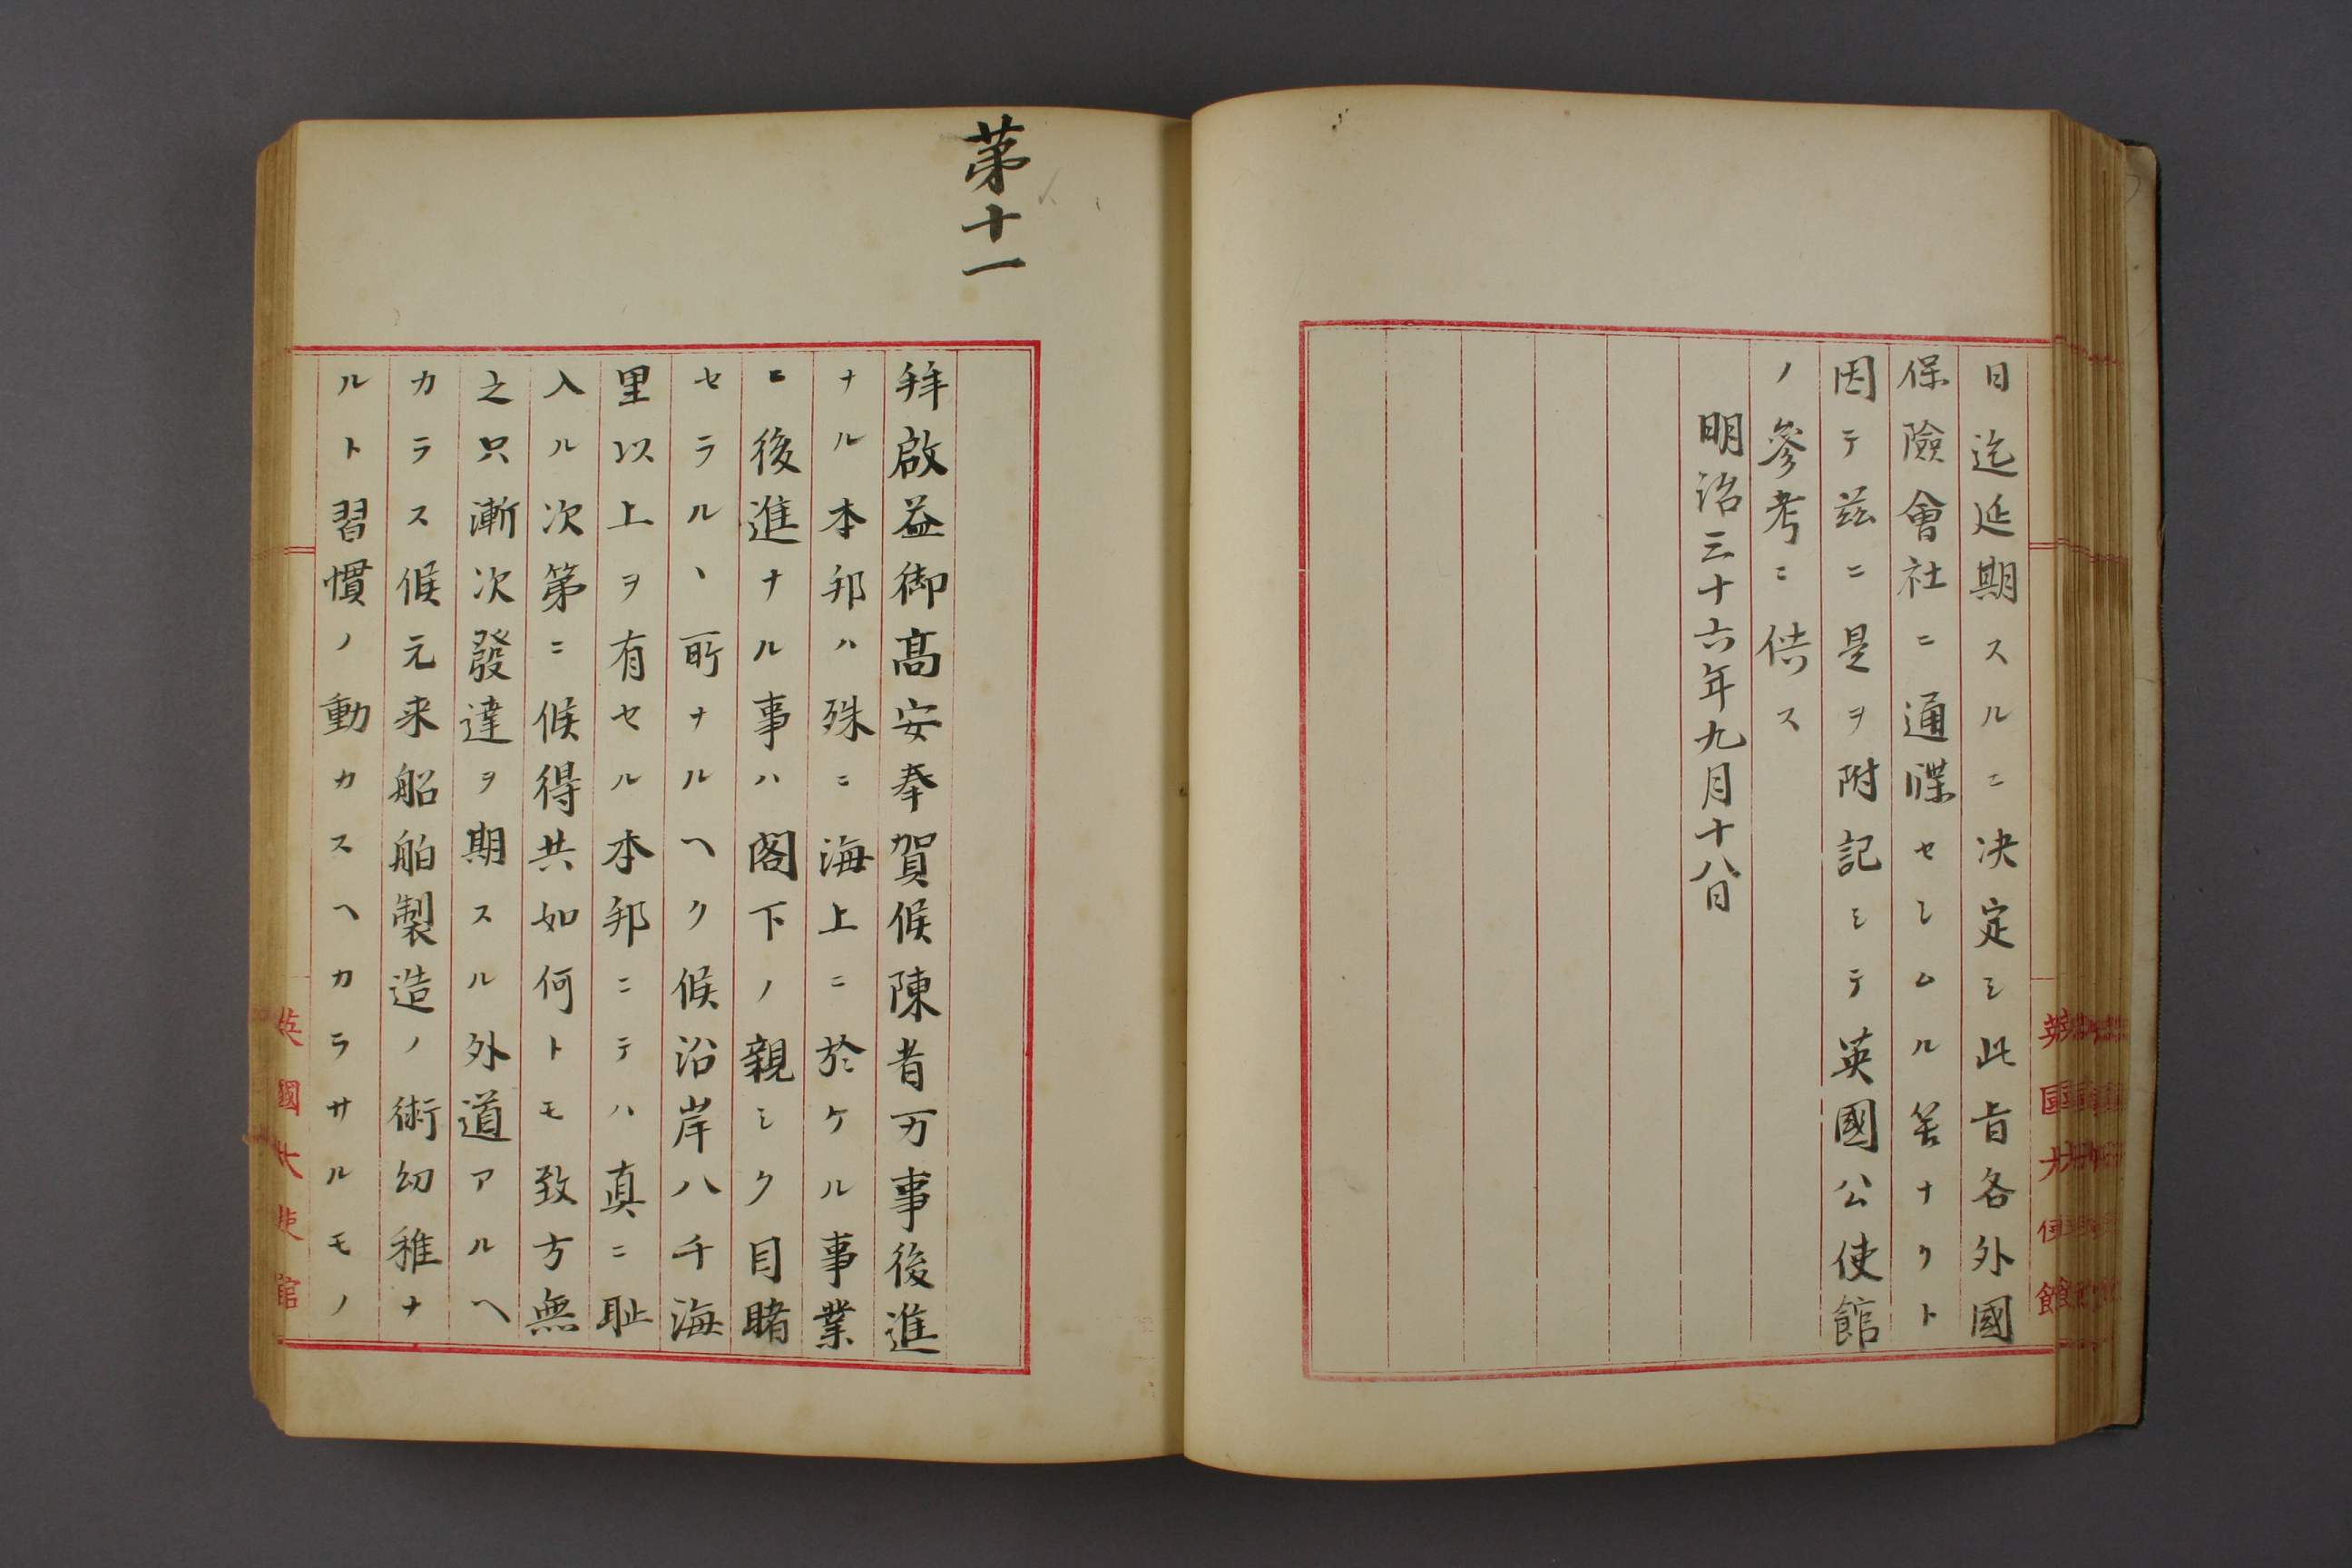 日迄延期スルニ决定シ此旨各外國
保險會社ニ通牒セシムル筈ナクト
因テ茲ニ是ヲ附記シテ英國公使館
ノ參考ニ供ス
明治三十六年九月十八日
英國大使館
第十一
拜啟益御髙安奉賀候陳者万事後進
ナル本邦ハ殊ニ海上ニ於ケル事業
ニ後進ナル事ハ閣下ノ親シク目睹
セラルヽ所ナルヘク候沿岸八千海
里以上ヲ有セル本邦ニテハ真ニ耻
入ル次第ニ候得共如何トモ致方無
之只漸次發達ヲ期スル外道アルヘ
カラス候元来船舶製造ノ術幼稚ナ
ルト習慣ノ動カスヘカラサルモノ
英國大使館